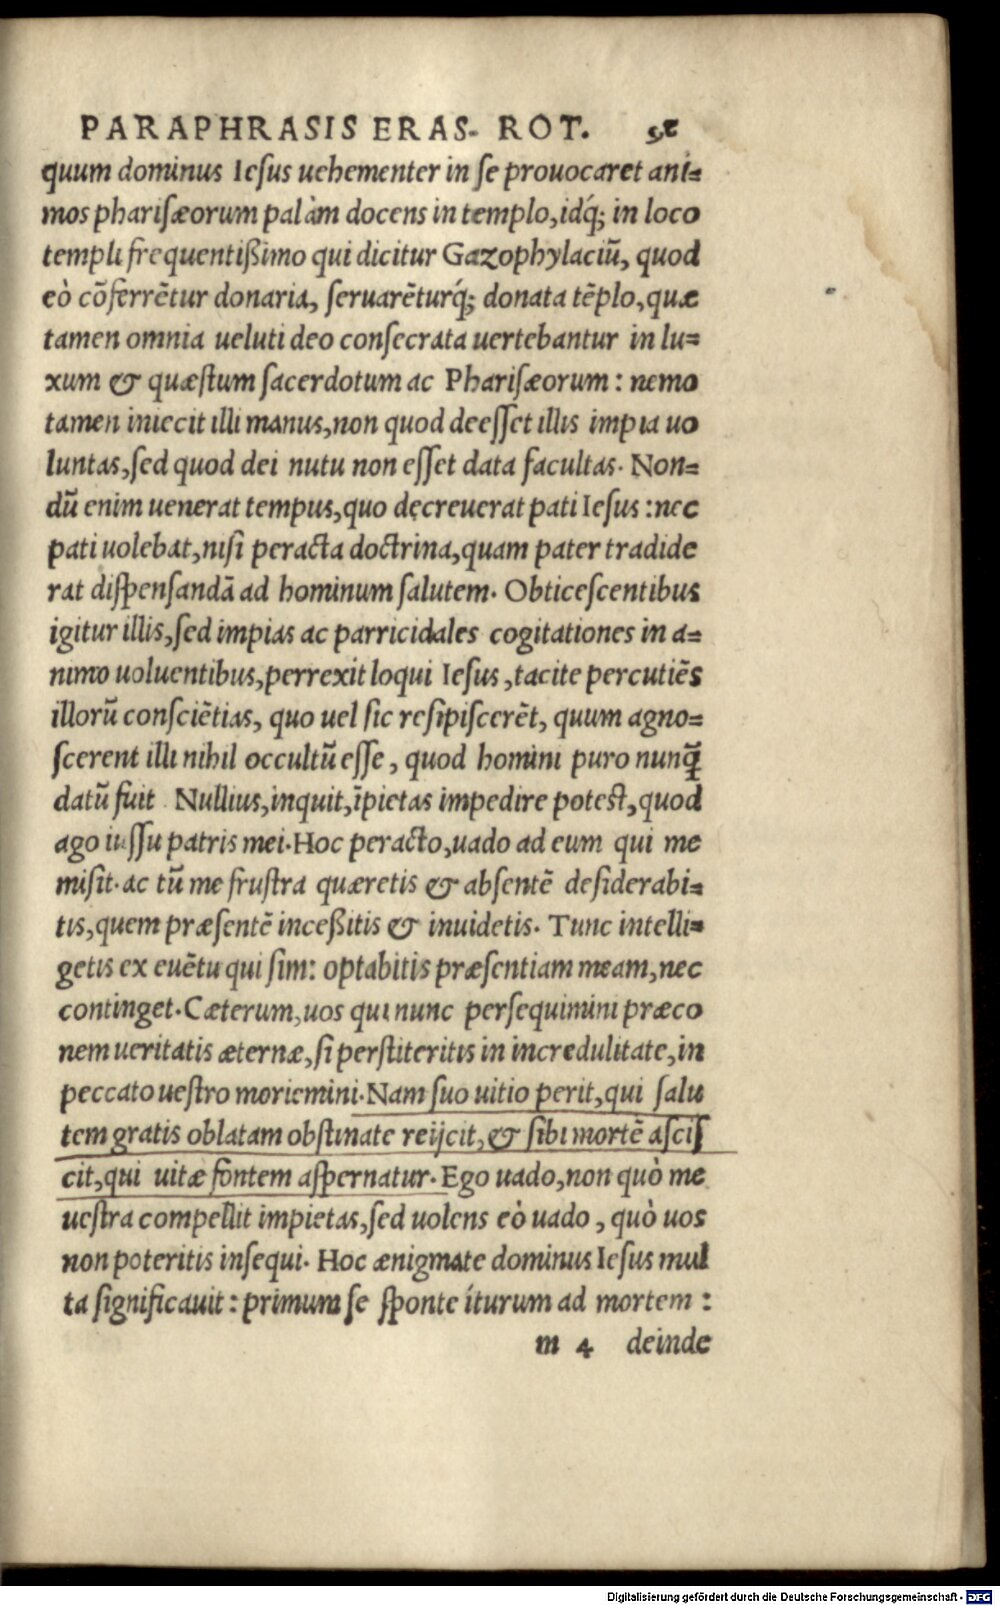 PARAPHRASIS ERAS. ROT.
quum dominus Iesus uehementer in se prouocaret ani=
mos pharisæorum palàm docens in templo, idq́; in loco
templi frequentißimo qui dicitur Gazophylaciũ, quod
eò cõferrẽtur donaria, seruarẽturq́; donata tẽplo, quæ
tamen omnia ueluti deo consecrata uertebantur in lu=
xum & quæstum sacerdotum ac Pharisæorum: nemo
tamen iniecit illi manus, non quod deesset illis impia uo
luntas, sed quod dei nutu non esset data facultas. Non=
dũ enim uenerat tempus, quo decreuerat pati Iesus: nec
pati uolebat, nisi peracta doctrina, quam pater tradide
rat dispensandã ad hominum salutem. Obticescentibus
igitur illis, sed impias ac parricidales cogitationes in a=
nimo uoluentibus, perrexit loqui Iesus, tacite percutiẽs
illorũ consciẽtias, quo uel sic resipiscerẽt, quum agno=
scerent illi nihil occultũ esse, quod homini puro nunq̃
datũ fuit. Nullius, inquit, ĩpietas impedire potest, quod
ago iussu patris mei. Hoc peracto, uado ad eum qui me
misit. ac tũ me frustra quæretis & absentẽ desiderabi=
tis, quem præsentẽ inceßitis & inuidetis. Tunc intelli=
getis ex euẽtu qui sim: optabitis præsentiam meam, nec
continget. Cæterum, uos qui nunc persequimini præco
nem ueritatis æternæ, si perstiteritis in incredulitate, in
peccato uestro moriemini. Nam suo uitio perit, qui salu
tem gratis oblatam obstinate reijcit, & sibi mortẽ ascis
cit, qui uitæ fontem aspernatur. Ego uado, non quò me
uestra compellit impietas, sed uolens eò uado, quò uos
non poteritis insequi. Hoc ænigmate dominus Iesus mul
ta significauit: primum se sponte iturum ad mortem:
m 4 deinde
Digitalisierung gefördert durch die Deutsche Forschungsgemeinschaft - DFG